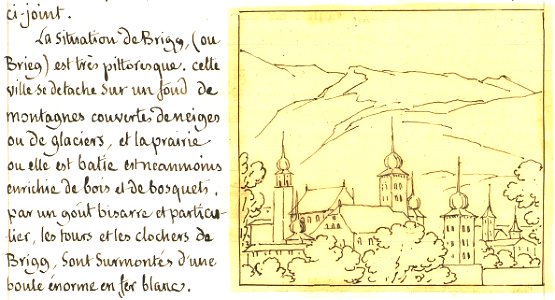 ci-joint.
La situation de Brigg, (ou
Brieg) est très pittoresque. cette
ville se detache sur un fond de
montagnes couvertes de neiges
ou de glaciers, et la prairie
ou elle est batie est neanmoins
enrichie de bois et de bosquets.
par un goût bisarre et particu-
lier, les tours et les clochers de
Brigg, sont surmontés d'une
boule énorme en fer blanc.